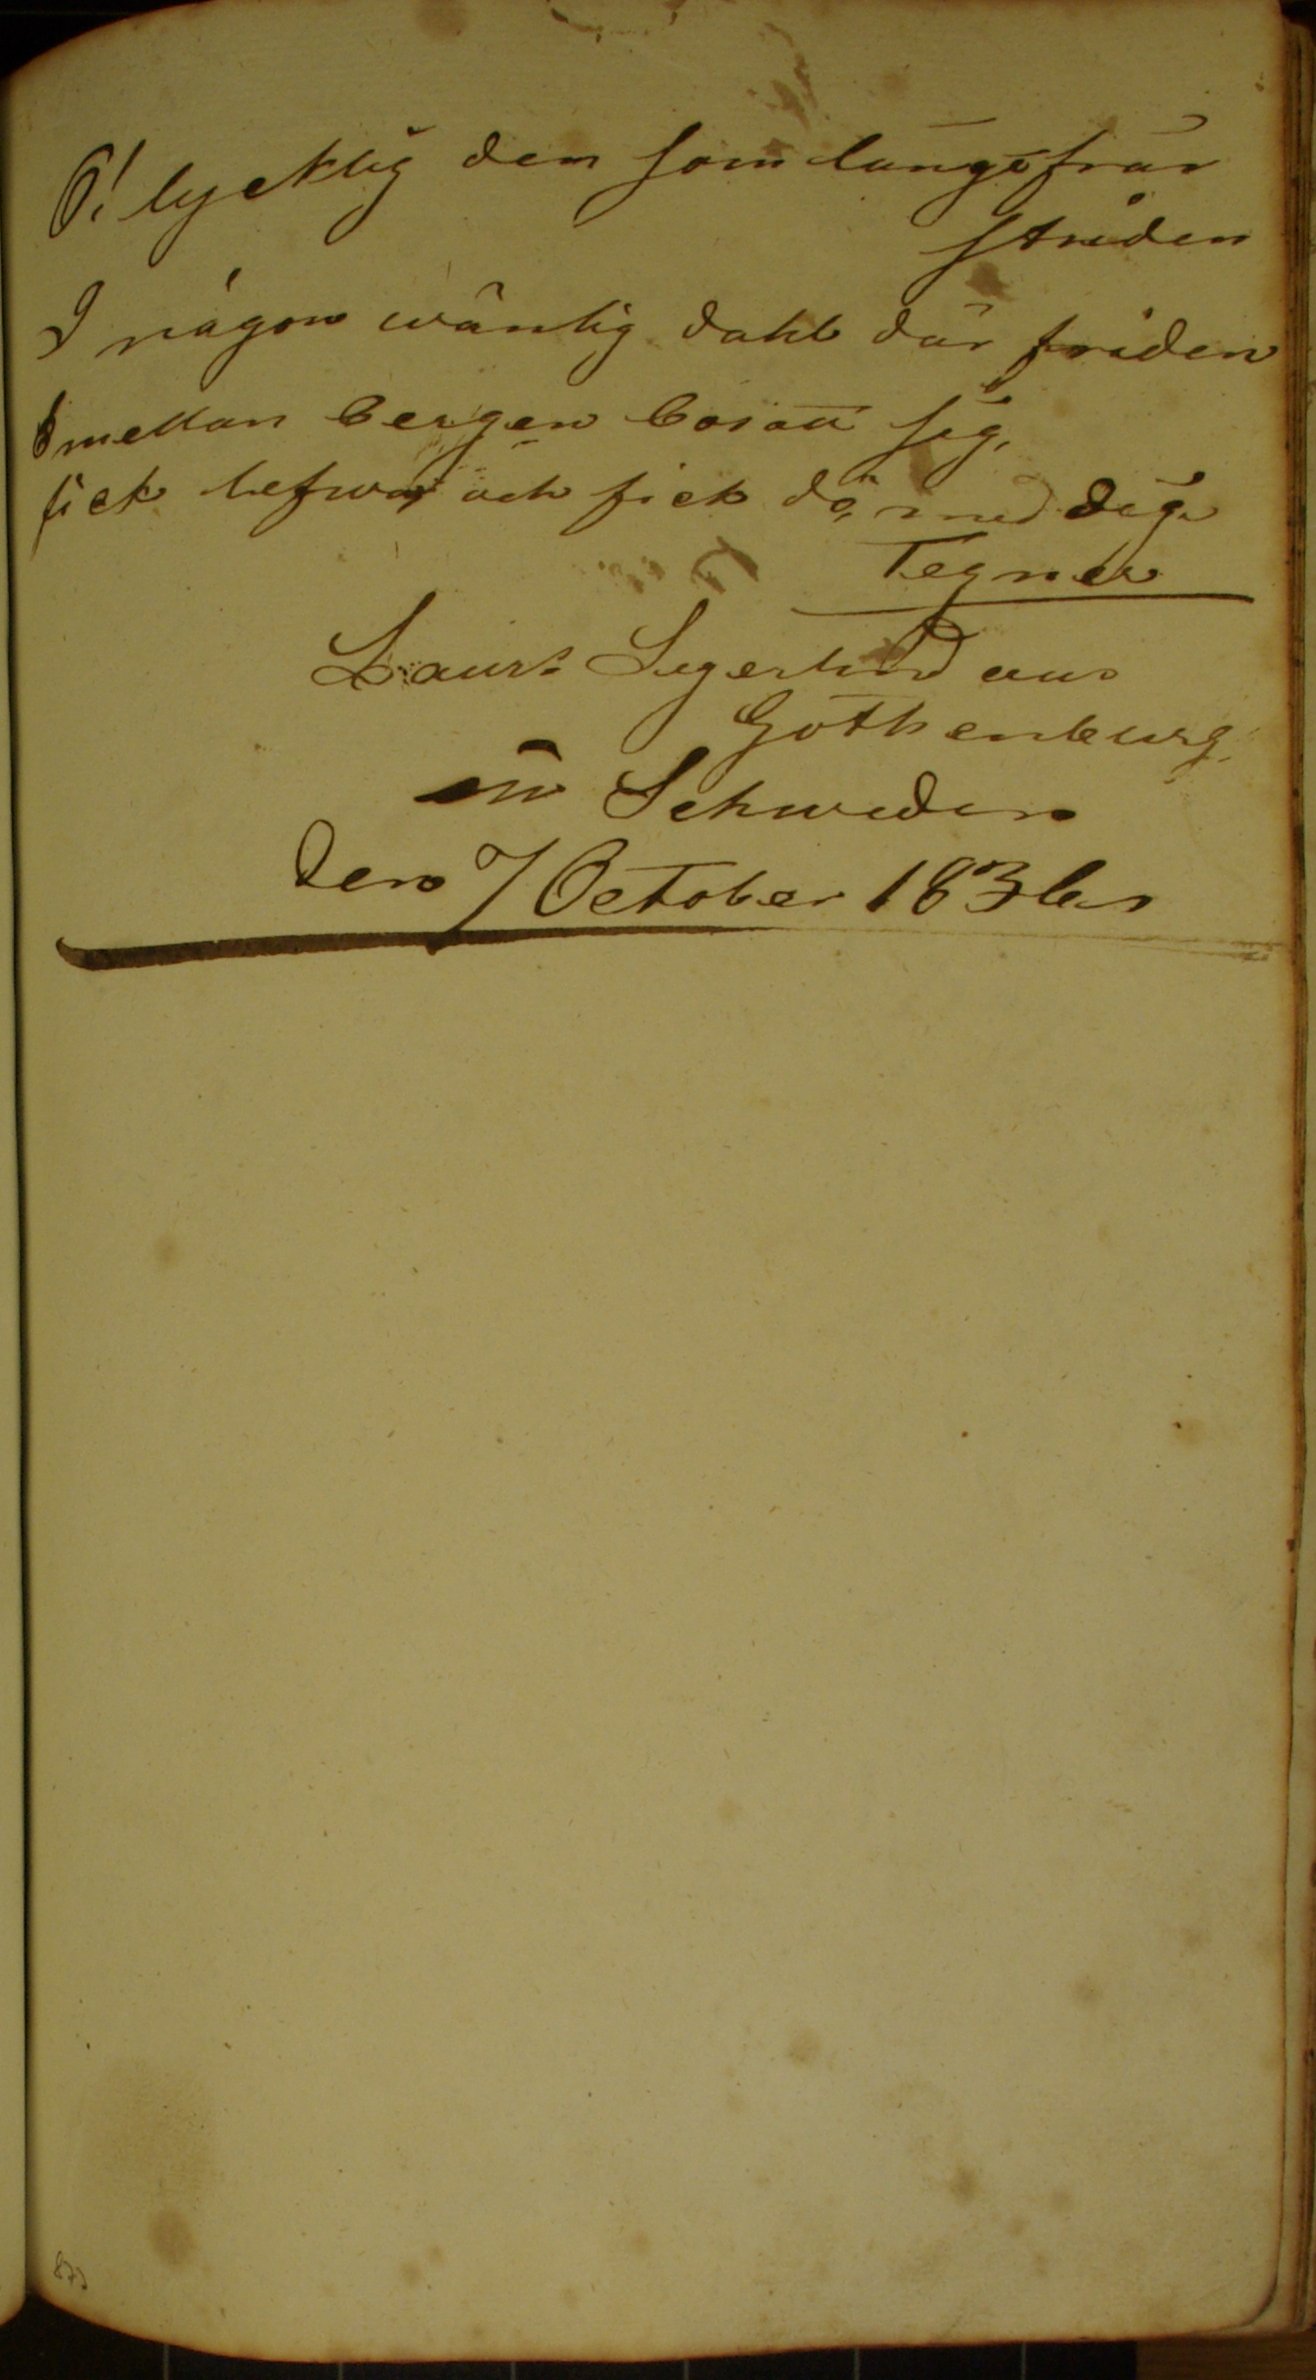 O! lycklig den som långs från
striden
I någon wänlig dahl där friden
Emellan bergen bosatt sig,
fick lefwa och fick dö, med dig
Tegner
Segerlind aus
Gothenburg.
in Schweden
den 7 October 183